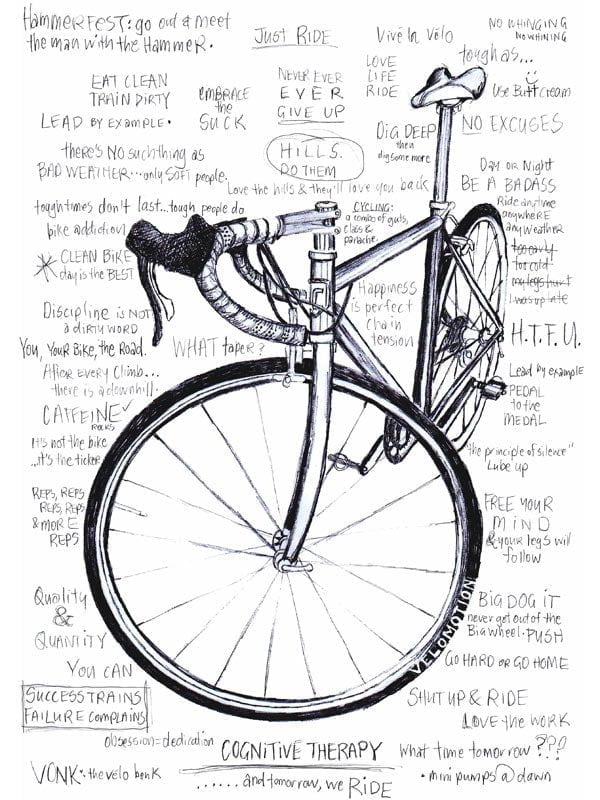 HammerFest: go out & meet
the man with the Hammer.
Just Ride
Vive la Vélo
NO WHINGING
NO WHINING
tough as...
LOVE
LIFE
RIDE
EAT CLEAN
TRAIN DIRTY
EMBRACE
the
SUCK
NEVER EVER
EVER
GIVE UP
Use Butt Cream
LEAD BY EXAMPLE.
DIG DEEP
then
dig some more
NO EXCUSES
there's NO such thing as
BAD WEATHER...only SOFT people.
HILLS.
DO THEM
Love the hills & they'll love you back
Day or Night
BE A BADASS
Ride anytime
anywhere
any weather
too early
too cold
my legs hurt
I was up late
tough times don't last...tough people do
CYCLING:
a combo of guts,
class &
panache.
bike addiction
CLEAN BIKE
day is the BEST
Happiness
is perfect
chain
tension
Discipline is NOT
a DIRTY WORD
H.T.F.U.
You, Your Bike, the Road.
WHAT taper?
After every climb...
there is a downhill.
Lead by example
PEDAL
to the
MEDAL
CAFFEINE
ROCKS
It's not the bike
...it's the ticker
"the principle of silence"
Lube up
REPS, REPS
REPS, REPS
& MORE
REPS
FREE YOUR
MIND
& your legs will
follow
Quality
&
Quantity
VELOMOTION
BIG DOG IT
never get out of the
Big wheel. PUSH
YOU CAN
GO HARD OR GO HOME
SUCCESS TRAINS
FAILURE COMPLAINS
SHUT UP & RIDE
LOVE the WORK
obsession = dedication
COGNITIVE THERAPY
What time tomorrow ???
VONK. the velo bonk
......and tomorrow, we RIDE
. mini pumps @ dawn